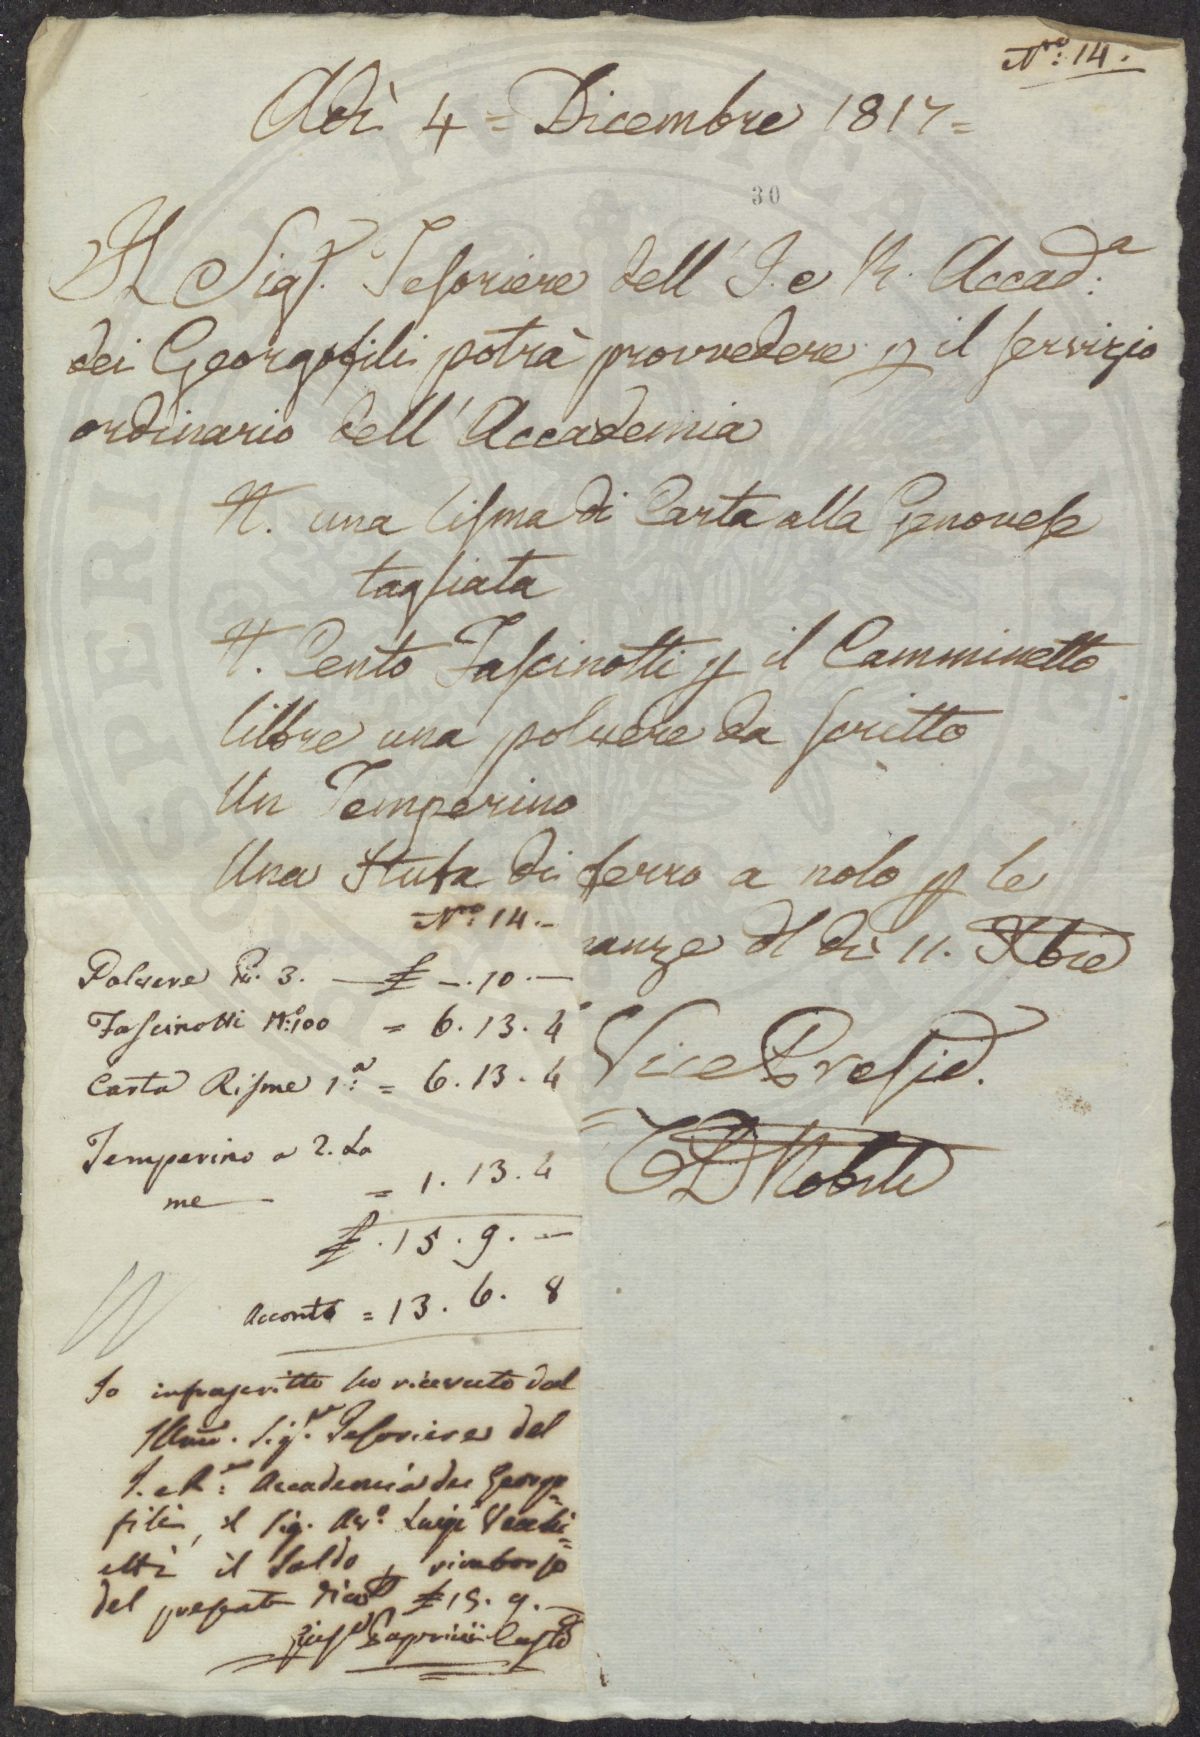 N.ro 14.
Adì 4 = Dicembre 1817 =
30
Il Sig.r Tesoriere dell' I. e R. Accad.a
dei Georgofili potrà provvedere p il servizio
ordinario dell' Accademia
N. una lisma di Carta alla Genovese
tagliata
N. Cento Fascinotti p il Camminetto
libbre una polvere da scritto
Un Temperino
Una stufa di ferro a nolo p le
anze dl dì 11. Xbre
Vice Presid.
N.ro 14.-
Polvere 3. — £ -. 10. —
Fascinotti N.o 100 = 6. 13. 4
Carta Risme 1.a = 6. 13. 4
Temperino a 2. La
me — = 1. 13. 4
£. 15. 9. —
Acconto = 13. 6. 8
Io infrascritto ho ricevuto dal
Illmo. Sig.re Tesoriere del
I. e R. Accademia dei Georgo=
fili, il Sig. Luigi
il Saldo, e rimborso
del presente £ 15. 9. —